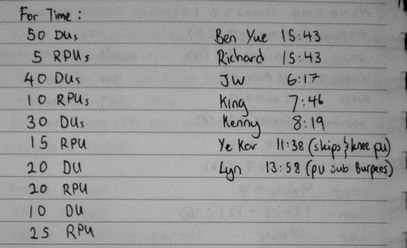 For Time :
50 DUs Ben Yue 15:43
5 RPUs Richard 15:43
40 DUs JW 6:17
10 RPUs King 7:46
30 DUs Kenny 8:19
15 RPU Ye Kar 11:38 (skips & knee pu)
20 DU Lyn 13:58 (pu sub Burpees)
20 RPU
10 DU
25 RPU